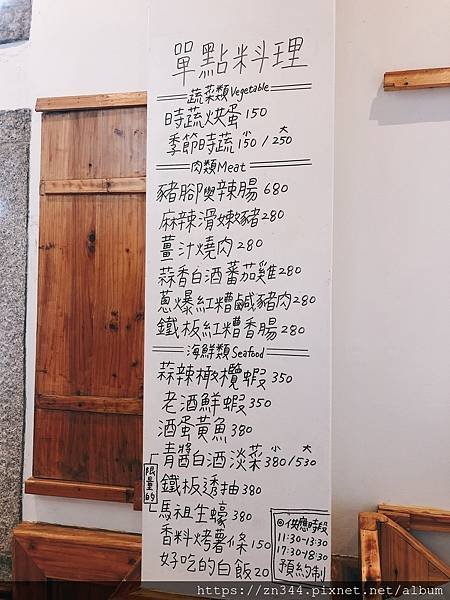 單點料理
蔬菜類 Vegetable
時蔬烘蛋 150
季節時蔬 小150 / 大250
肉類 Meat
豬腳與辣腸 680
麻辣滑嫩豬 280
薑汁燒肉 280
蒜香白酒蕃茄雞 280
蔥爆紅糟鹹豬肉 280
鐵板紅糟香腸 280
海鮮類 Seafood
蒜辣橄欖蝦 350
老酒鮮蝦 350
酒蛋黃魚 380
青醬白酒淡菜 小380 / 大530
限量的
鐵板透抽 380
馬祖生蠔 380
香料烤薯條 150
好吃的白飯 20
@供應時段
11:30-13:30
17:30-18:30
預約制
https://zn344.pixnet.net/album